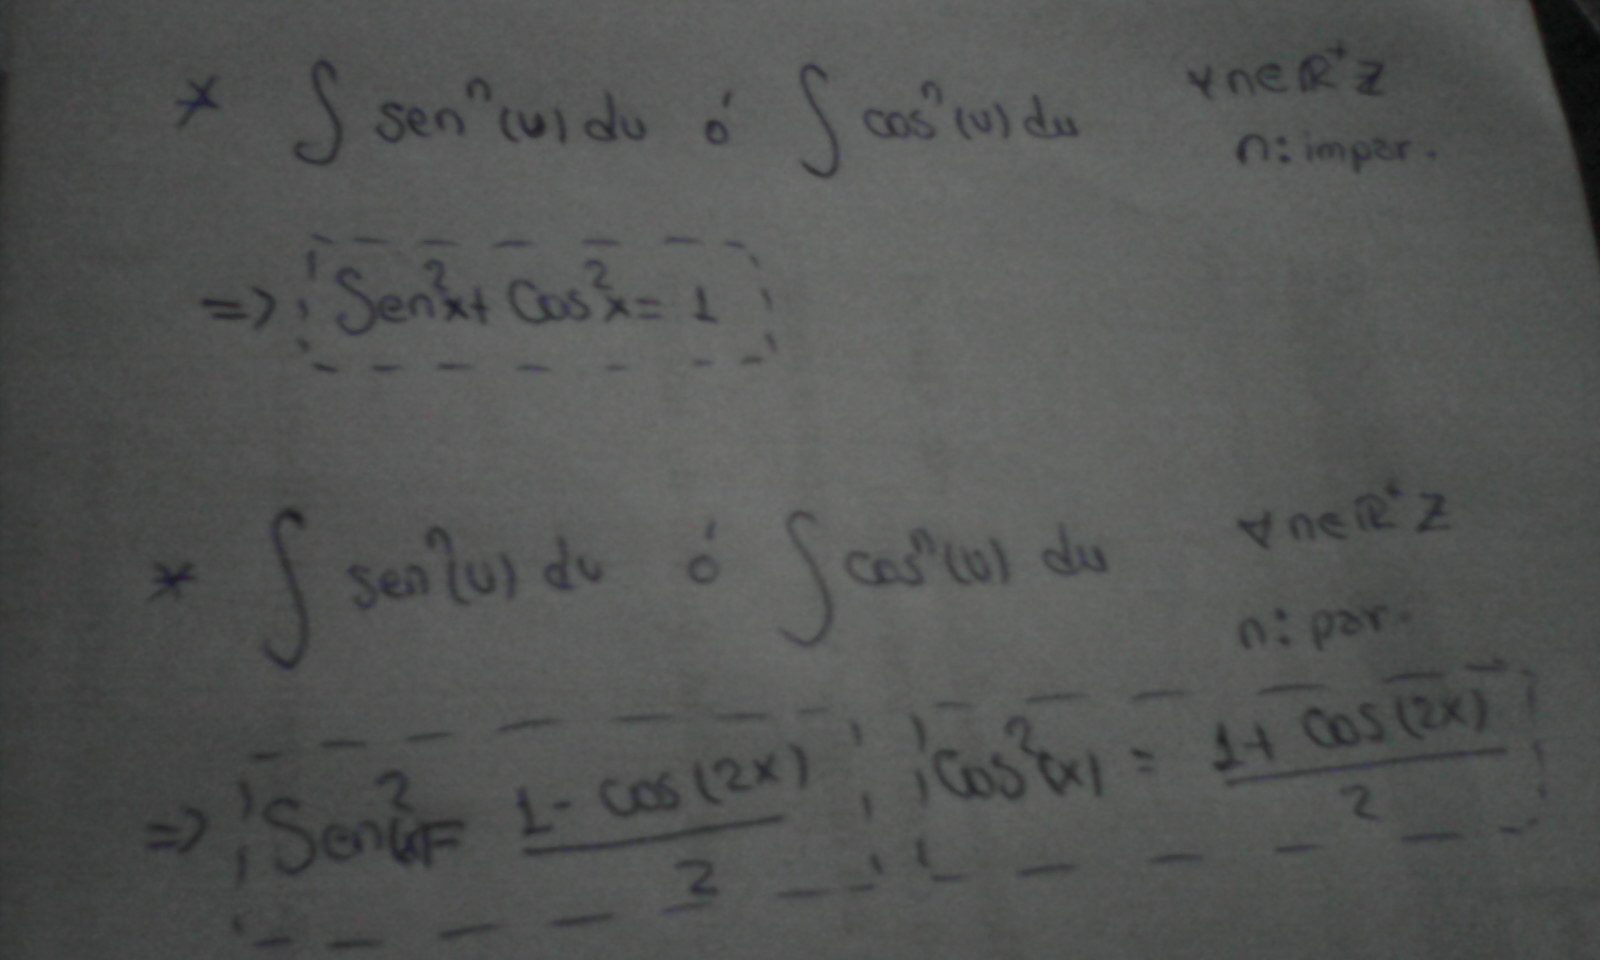 * ∫ senⁿ(u) du ó ∫ cosⁿ(u) du ∀ n ∈ ℝ⁺ Z
n: impar.
=> Sen²x + Cos²x = 1
* ∫ senⁿ(u) du ó ∫ cosⁿ(u) du ∀ n ∈ ℝ⁺ Z
n: par.
=> Sen²(x) = (1 - cos(2x))/2 ; Cos²(x) = (1 + cos(2x))/2